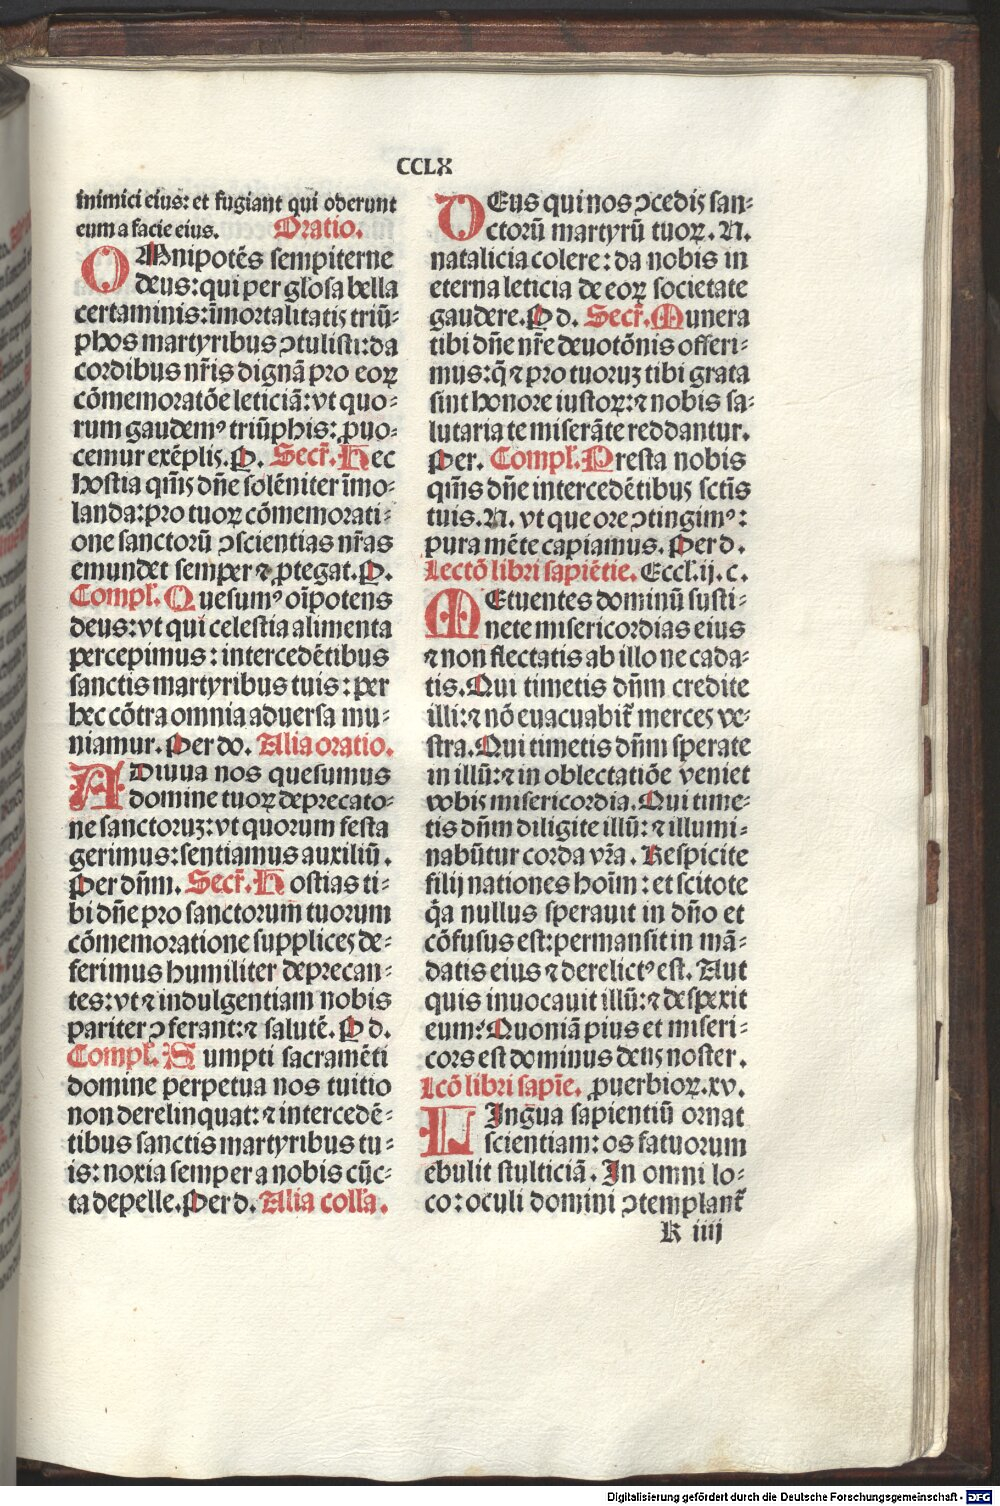 CCLX
inimici eius: et fugiant qui oderunt
eum a facie eius. Oratio.
OMnipotēs sempiterne
deus: qui per gl'osa bella
certaminis: īmortalitatis triū-
phos martyribus ↄtulisti: da
cordibus nr̄is dignā pro eoꝝ
cōmemoratōe leticiā: vt quo-
rum gaudemꝰ triūphis: ꝓuo-
cemur exēplis. P. Secr̄. Hec
hostia qm̄s dn̄e solēniter īmo-
landa: pro tuoꝝ cōmemorati-
one sanctorū ↄscientias nr̄as
emundet semper ⁊ ꝓtegat. P.
Compl'. Quesumꝰ oīpotens
deus: vt qui celestia alimenta
percepimus: intercedētibus
sanctis martyribus tuis: per
hec cōtra omnia aduersa mu-
niamur. Per do. Alia oratio.
ADiuua nos quesumus
domine tuoꝝ deprecato-
ne sanctoruꝫ: vt quorum festa
gerimus: sentiamus auxiliū.
Per dn̄m. Secr̄. Hostias ti-
bi dn̄e pro sanctorum tuorum
cōmemoratione supplices de-
ferimus humiliter deprecan-
tes: vt ⁊ indulgentiam nobis
pariter ↄferant: ⁊ salutē. P d.
Compl'. Sumpti sacramēti
domine perpetua nos tuitio
non derelinquat: ⁊ intercedē-
tibus sanctis martyribus tu-
is: noxia semper a nobis cūc-
ta depelle. Per d. Alia coll'a.
DEus qui nos ↄcedis san-
ctorū martyrū tuoꝝ. N.
natalicia colere: da nobis in
eterna leticia de eoꝝ societate
gaudere. P d. Secr̄. Munera
tibi dn̄e nr̄e deuotōnis offeri-
mus: q̄ ⁊ pro tuoruꝫ tibi grata
sint honore iustoꝝ: ⁊ nobis sa-
lutaria te miserāte reddantur.
Per. Compl'. Presta nobis
qm̄s dn̄e intercedētibus sctīs
tuis. N. vt que ore ↄtingimꝰ:
pura mēte capiamus. Per d.
Lectō libri sapiētie. Eccl'. ij. c.
MEtuentes dominū susti-
nete misericordias eius
⁊ non flectatis ab illo ne cada-
tis. Qui timetis dn̄m credite
illi: ⁊ nō euacuabit̄ merces ve-
stra. Qui timetis dn̄m sperate
in illū: ⁊ in oblectatiōe veniet
vobis misericordia. Qui time-
tis dn̄m diligite illū: ⁊ illumi-
nabūtur corda vr̄a. Respicite
filij nationes hoīm: et scitote
q̄a nullus sperauit in dn̄o et
cōfusus est: permansit in mā-
datis eius ⁊ derelictꝰ est. Aut
quis inuocauit illū: ⁊ despexit
eum: Quoniā pius et miseri-
cors est dominus deus noster.
Lcō libri sapīe. ꝓuerbioꝝ. xv.
LIngua sapientiū ornat
scientiam: os fatuorum
ebulit stulticiā. In omni lo-
co: oculi domini ↄtemplant̄
K iiij
Digitalisierung gefördert durch die Deutsche Forschungsgemeinschaft - DFG